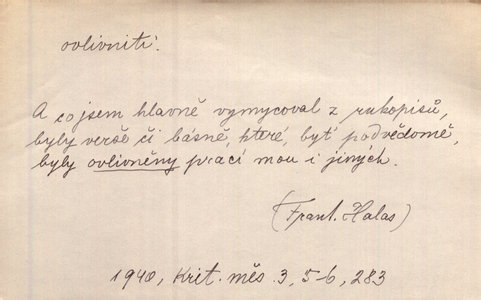 ovlivniti:
A co jsem hlavně vymycoval z rukopisů,
byly verše či básně, které, byť podvědomě,
byly ovlivněny prací mou i jiných.
(Frant. Halas)
1940, Krit. měs. 3, 5-6, 283